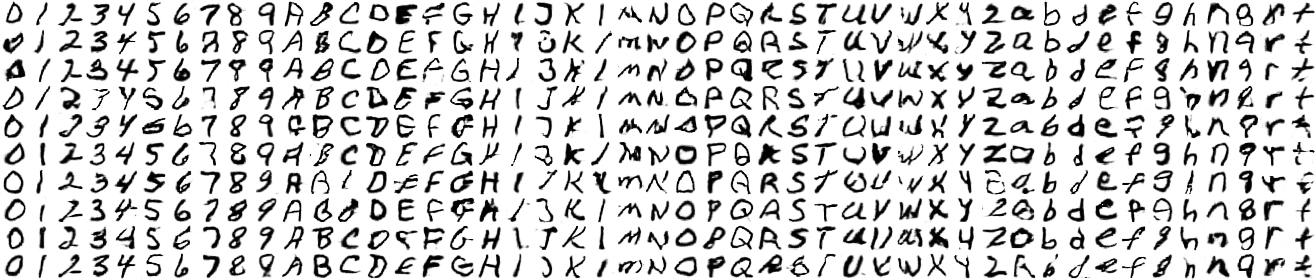 0 1 2 3 4 5 6 7 8 9 A B C D E F G H I J K l m N O P Q R S T U V W X Y Z a b d e f g h n q r t
0 1 2 3 4 5 6 7 8 9 A B C D E F G H I J K l m N O P Q R S T U V W X Y Z a b d e f g h n q r t
0 1 2 3 4 5 6 7 8 9 A B C D E F G H I J K l m N O P Q R S T U V W X Y Z a b d e f g h n q r t
0 1 2 3 4 5 6 7 8 9 A B C D E F G H I J K l M N O P Q R S T U V W X Y Z a b d e f g h n q r t
0 1 2 3 4 5 6 7 8 9 A B C D E F G H I J K l M N O P Q R S T U V W X Y Z a b d e f g h n q r t
0 1 2 3 4 5 6 7 8 9 A B C D E F G H I J K l M N O P Q R S T U V W X Y Z a b d e f g h n q r t
0 1 2 3 4 5 6 7 8 9 A B C D E F G H I J K l m N O P Q R S T U V W X Y Z a b d e f g h n q r t
0 1 2 3 4 5 6 7 8 9 A B C D E F G H I J K l m N O P Q R S T U V W X Y Z a b d e f g h n q r t
0 1 2 3 4 5 6 7 8 9 A B C D E F G H I J K l m N O P Q R S T U V W X Y Z a b d e f g h n q r t
0 1 2 3 4 5 6 7 8 9 A B C D E F G H I J K l M N O P Q R S T U V W X Y Z a b d e f g h n q r t